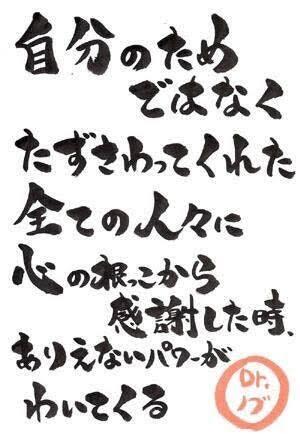 自分のため
ではなく
たずさわってくれた
全ての人々に
心の根っこから
感謝した時、
ありえないパワーが
わいてくる
Dr.
ノブ